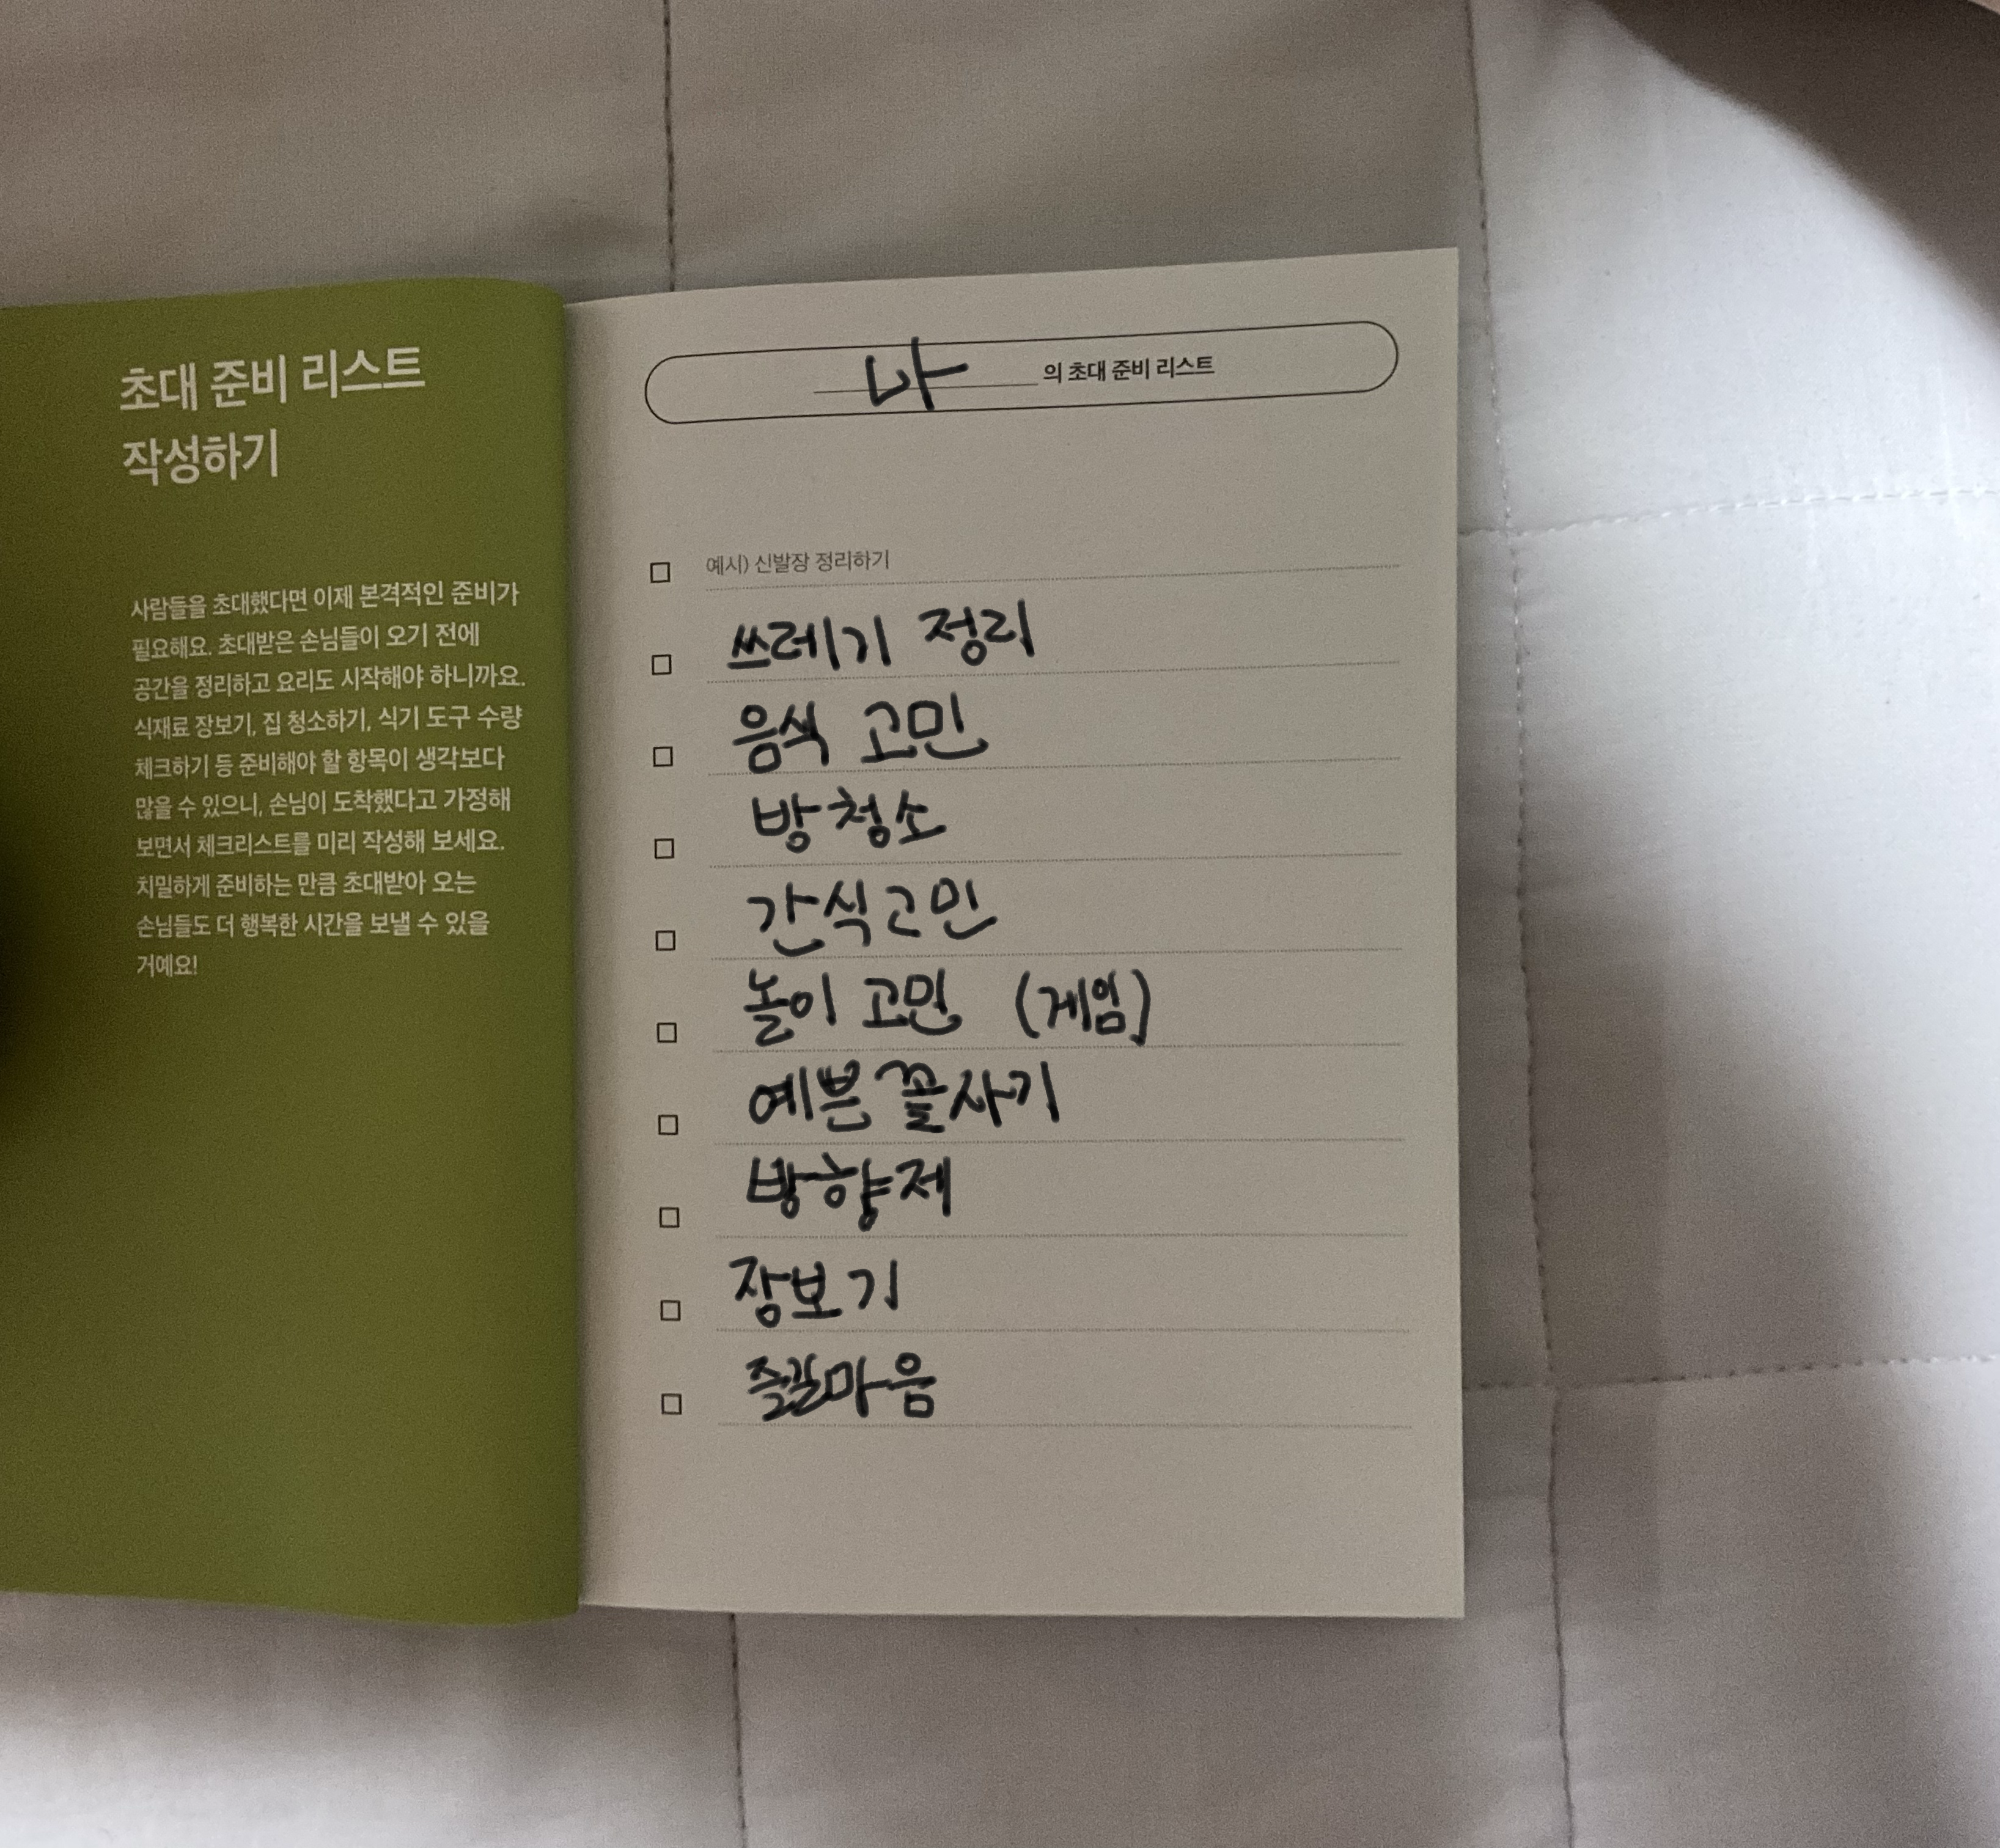 초대 준비 리스트
작성하기
사람들을 초대했다면 이제 본격적인 준비가
필요해요. 초대받은 손님들이 오기 전에
공간을 정리하고 요리도 시작해야 하니까요.
식재료 장보기, 집 청소하기, 식기 도구 수량
체크하기 등 준비해야 할 항목이 생각보다
많을 수 있으니, 손님이 도착했다고 가정해
보면서 체크리스트를 미리 작성해 보세요.
치밀하게 준비하는 만큼 초대받아 오는
손님들도 더 행복한 시간을 보낼 수 있을
거예요!
나 의 초대 준비 리스트
예시) 신발장 정리하기
쓰레기 정리
음식 고민
방청소
간식고민
놀이 고민 (게임)
예쁜 꽃사기
방향제
장보기
즐길마음